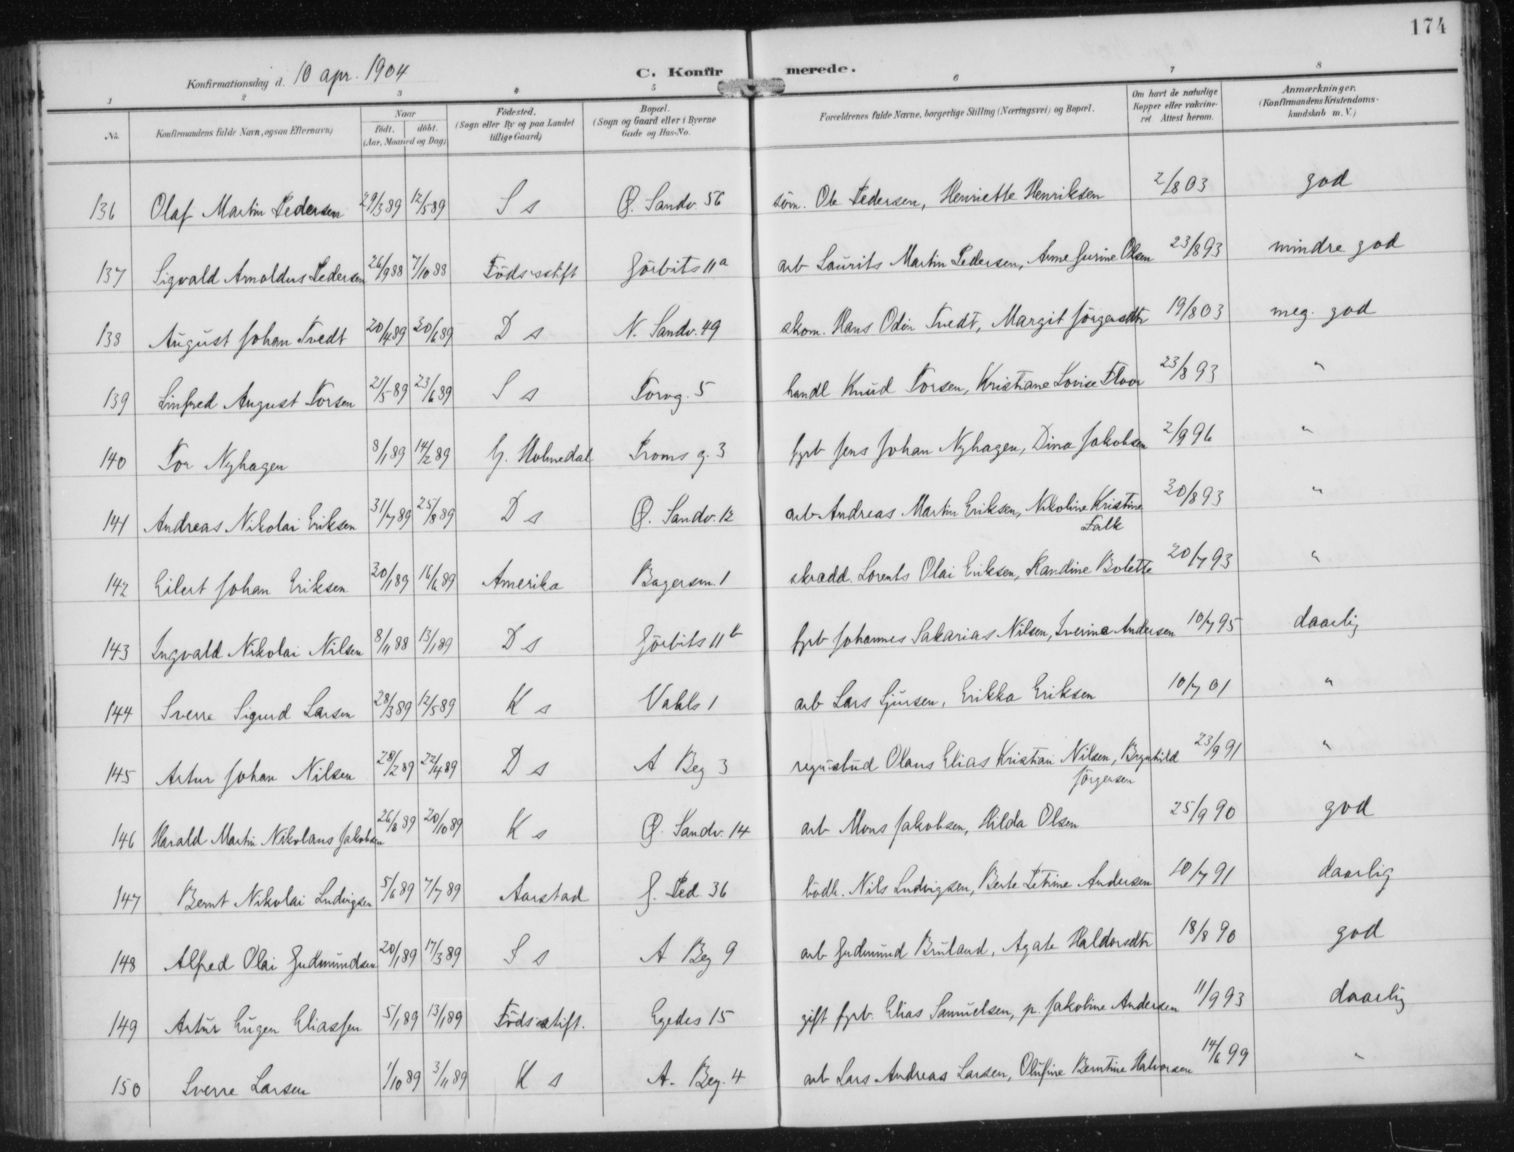 174
Konfirmationsdag d. 10 apr. 1904 C. Konfirmerede.
1 2 3 4 5 6 7 8
No. Konfirmandens fulde Navn, ogsaa Efternavn) Naar født. døbt. (Aar, Maaned og Dag) Fødested. (Sogn eller By og paa Landet tillige Gaard) Bopæl. (Sogn og Gaard eller i Byerne Gade og Hus-No. Forældrenes fulde Navne, borgerlige Stilling (Næringsvei) og Bopæl. Om havt de naturlige Kopper eller vakcineret Attest herom. Anmærkninger. (Konfirmandens Kristendomskundskab m. V.)
136 Olaf Martin Pedersen 29/3 89 12/5 89 S s Ø. Sandv. 56 søm. Ole Pedersen, Henriette Henriksen 2/8 03 god
137 Sigvald Arnoldus Pedersen 26/9 88 7/10 88 Fødsstift Gørbits 11a arb Laurits Martin Pedersen, Anne Gurine Olsen 23/8 93 mindre god
138 August Johan Tvedt 20/4 89 30/6 89 D s N. Sandv. 49 skom. Hans Odin Tvedt, Margit Jørgensdtr 19/8 03 meg. god
139 Linfred August Torsen 21/5 89 23/6 89 S s Torvg. 5 handl Knud Torsen, Kristiane Lovise Floor 23/8 93 "
140 Tor Nyhagen 8/1 89 14/2 89 Y. Holmedal Troms g. 3 fyrb Jens Johan Nyhagen, Dina Jakobsen 2/9 96 "
141 Andreas Nikolai Eriksen 31/7 89 25/8 89 D s Ø. Sandv. 12 arb Andreas Martin Eriksen, Nikoline Kristine Falk 30/8 93 "
142 Eilert Johan Eriksen 30/1 89 16/6 89 Amerika Bagersm. 1 skrædd. Lorents Olai Eriksen, Randine Bolette 20/7 93 "
143 Ingvald Nikolai Nilsen 8/11 88 13/1 89 D s Gørbits 11b fyrb Johannes Sakarias Nilsen, Iverine Andersen 10/7 95 daarlig
144 Sverre Sigurd Larsen 28/3 89 12/5 89 K s Vahls 1 arb Lars Sjursen, Erikka Eriksen 10/7 01 "
145 Artur Johan Nilsen 28/2 89 22/4 89 D s A Beg 3 Olaus Elias Kristian Nilsen, Brynhild Jørgensen 23/9 91 "
146 Harald Martin Nikolaus Jakobsen 26/8 89 20/10 89 K s Ø. Sandv. 14 arb Mons Jakobsen, Hilda Olsen 25/9 90 god
147 Bernt Nikolai Ludvigsen 5/6 89 7/7 89 Aarstad J. Ped 36 bødk. Nils Ludvigsen, Berte Petrine Andersen 10/7 91 daarlig
148 Alfred Olai Gudmundsen 20/1 89 17/3 89 S s A Beg 9 arb Gudmund Bruland, Agate Haldorsdtr 18/8 90 god
149 Artur Eugen Eliassen 5/1 89 13/1 89 Fødsstift. Egedes 15 gift fyrb. Elias Samuelsen, p. Jakobine Andersen 11/9 93 daarlig
150 Sverre Larsen 1/10 89 3/11 89 K s A. Beg. 4 arb Lars Andreas Larsen, Olufine Berntine Halvorsen 14/6 99 "